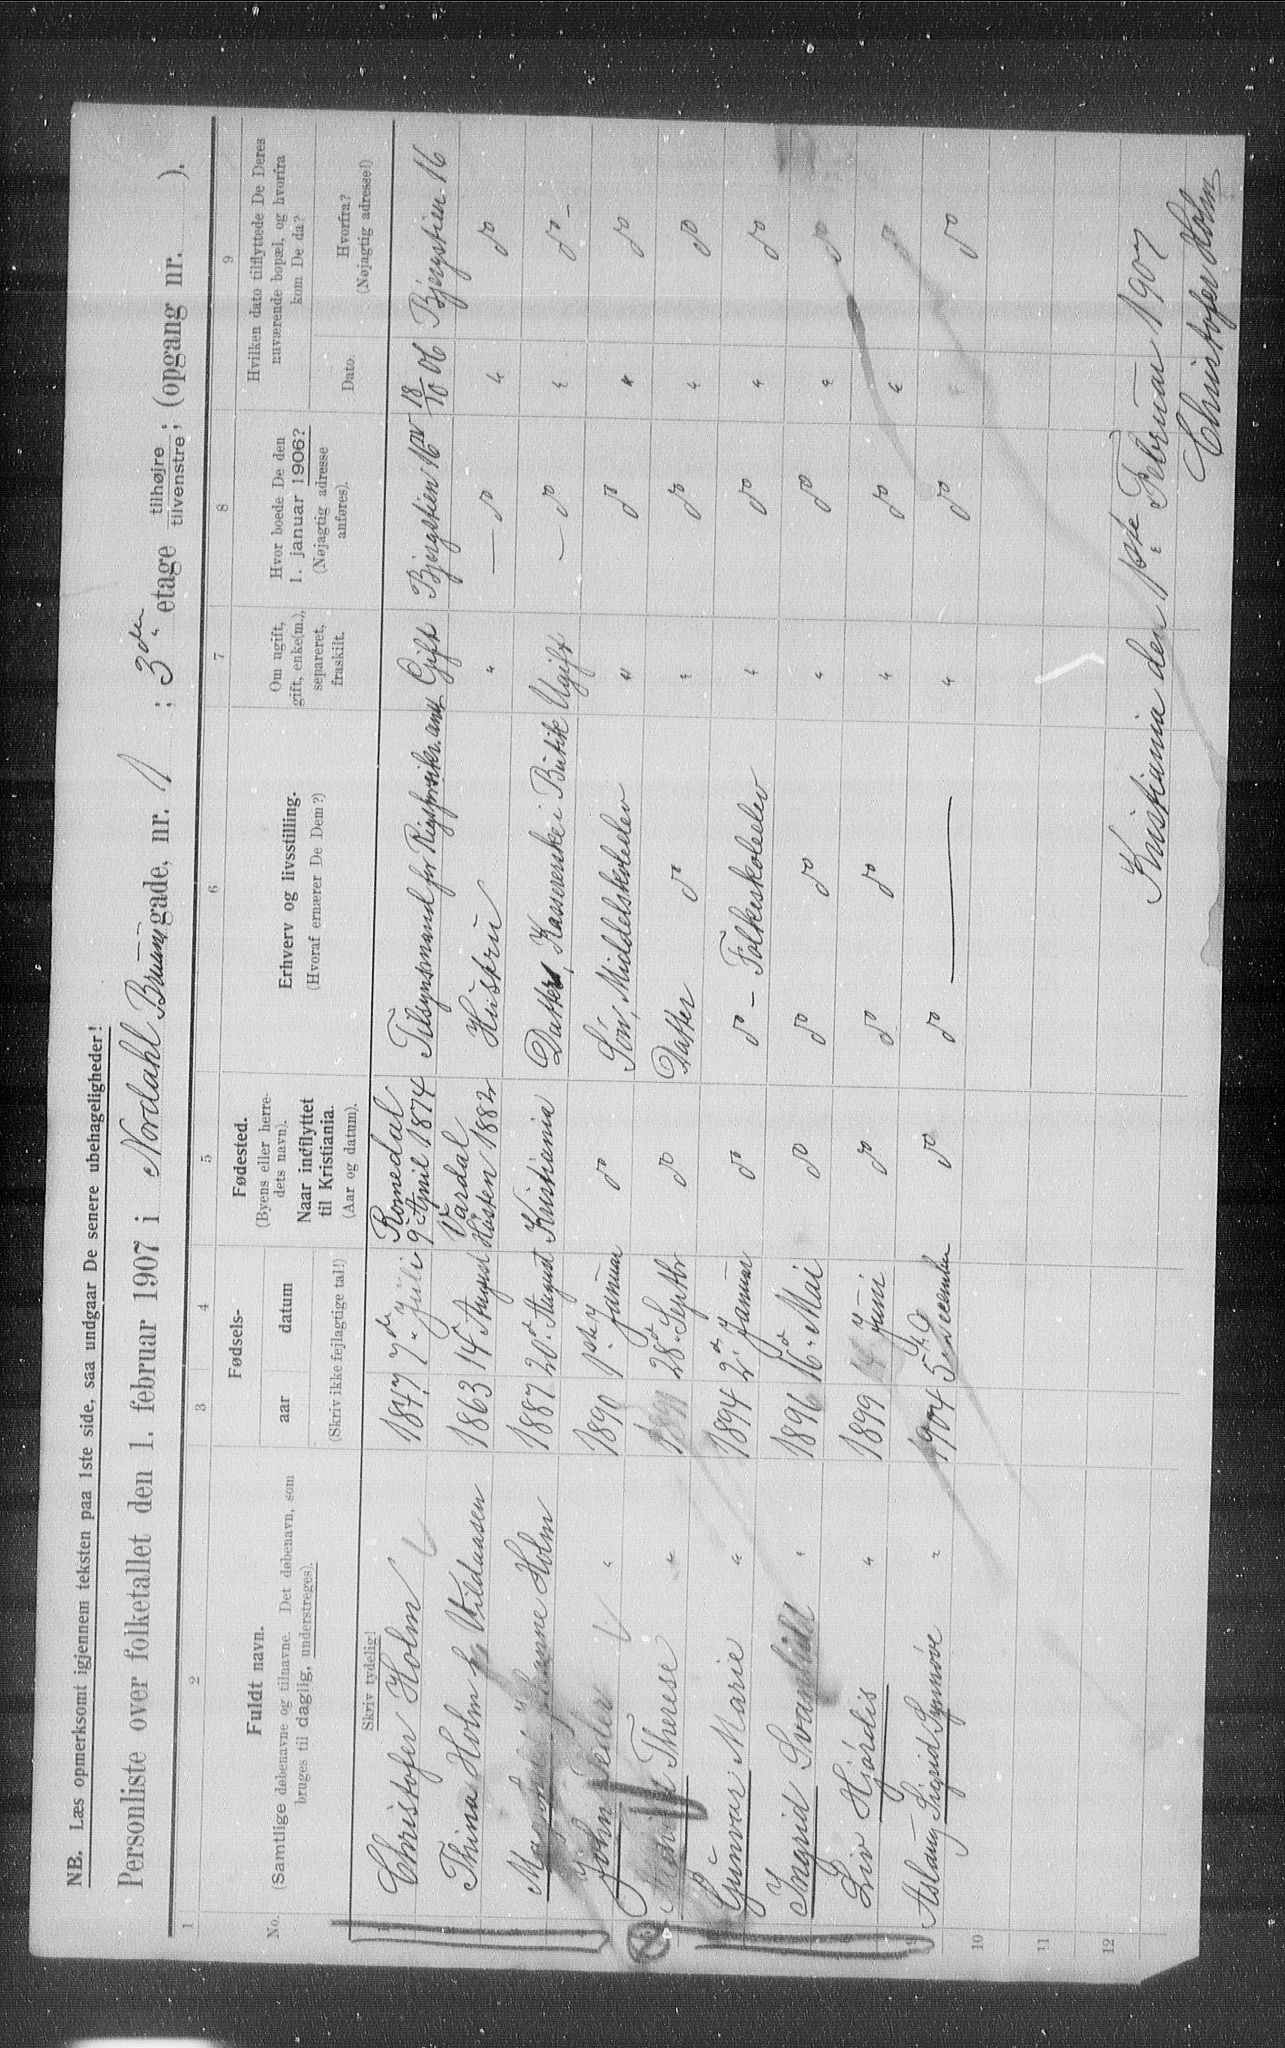 NB. Læs opmerksomt igjennem teksten paa 1ste side, saa undgaar De senere ubehageligheder!
Personliste over folketallet den 1. februar 1907 i Nordahl Bruunsgade, nr. 1; 3den etage tilhøjre tilvenstre; (opgang nr. ).
1 2 3 4 5 6 7 8 9
No. Fuldt navn. (Samtlige døbenavne og tilnavne. Det døbenavn, som bruges til daglig, understreges).
Fødsels- aar datum (Skriv ikke fejlagtige tal!)
Fødested. (Byens eller herredets navn). Naar indflyttet til Kristiania. (Aar og datum).
Erhverv og livsstilling. (Hvoraf ernærer De Dem?)
Om ugift, gift, enke(m.), separeret, fraskilt.
Hvor boede De den 1. januar 1906? (Nøjagtig adresse anføres).
Hvilken dato tilflyttede De Deres nuværende bopæl, og hvorfra kom De da?
Dato. Hvorfra? (Nøjagtig adresse!)
Skriv tydelig!
Christofer Holm 1847 7de Juli Romedal 9 April 1874 Tilsynsmand for Gift Bjergstien 16 18/10 06 Bjergstien 16
Thina Holm f. Vildaasen 1863 14 August Vardal Høsten 1882 Hüstrü " — do " do
Johanne Holm 1887 20de August Kristiania Datter, Kassererske i Bütik Ugift — do " do -
John Peder " 1890 1ste Januar do Søn, Middelskoleelev " do " do
Therese " 28de Septbr do Datter do " do " do
Günvar Marie " 1894 2de Januar do do - Folkeskoleelev " do " do
Ingrid Svanhild " 1896 16de Mai do do do " do " do
Liv Hjørdis " 1899 14 Juni do do do " do " do
9 Aslaug Sigrid Synnøve " 1904 5te December do do — " do " do
10
11
12
Kristiania den 1ste Februar 1907
Christofer Holm